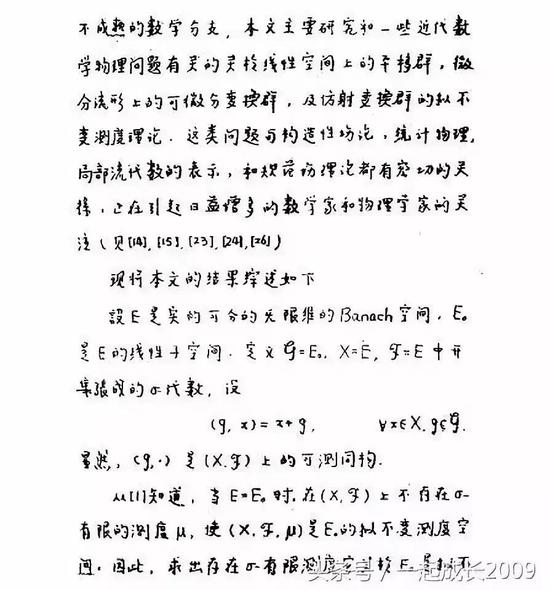 不成熟的数学分支, 本文主要研究和一些近代数
学物理问题有关的关于线性空间上的平移群, 微
分流形上的可微分变换群, 及仿射变换群的拟不
变测度理论. 这类问题与构造性场论, 统计物理,
局部流代数的表示, 和规范场理论都有密切的关
系, 正在引起日益增多的数学家和物理学家的关
注 (见[14], [15], [23], [24], [26])
现将本文的结果综述如下
設E是实的可分的无限维的Banach空间, E₀
是E的线性子空间. 定义 𝒢=E₀, X=E, ℱ=E中开
集張成的σ代数, 设
(g, x) = x+g, ∀x∈X, g∈𝒢.
显然, (g,·) 是 (X,ℱ) 上的可测同构.
从[1]知道, 当E=E₀时, 在(X,ℱ)上不存在σ-
有限的测度μ, 使(X,ℱ,μ)是E₀的拟不变测度空
间. 因此, 求出存在σ-有限测度
头条号 / 一起成长2009